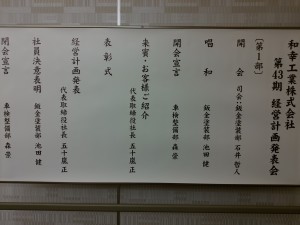 和幸工業株式会社
第43期 経営計画発表会
〔第1部〕
開会 司会:鈑金塗装部 石井 哲人
唱和 鈑金塗装部 池田 健
開会宣言 車検整備部 森 蛍
来賓・お客様ご紹介
代表取締役社長 五十嵐 正
表彰式 代表取締役社長 五十嵐 正
経営計画発表
代表取締役社長 五十嵐 正
社員決意表明 鈑金塗装部 池田 健
閉会宣言 車検整備部